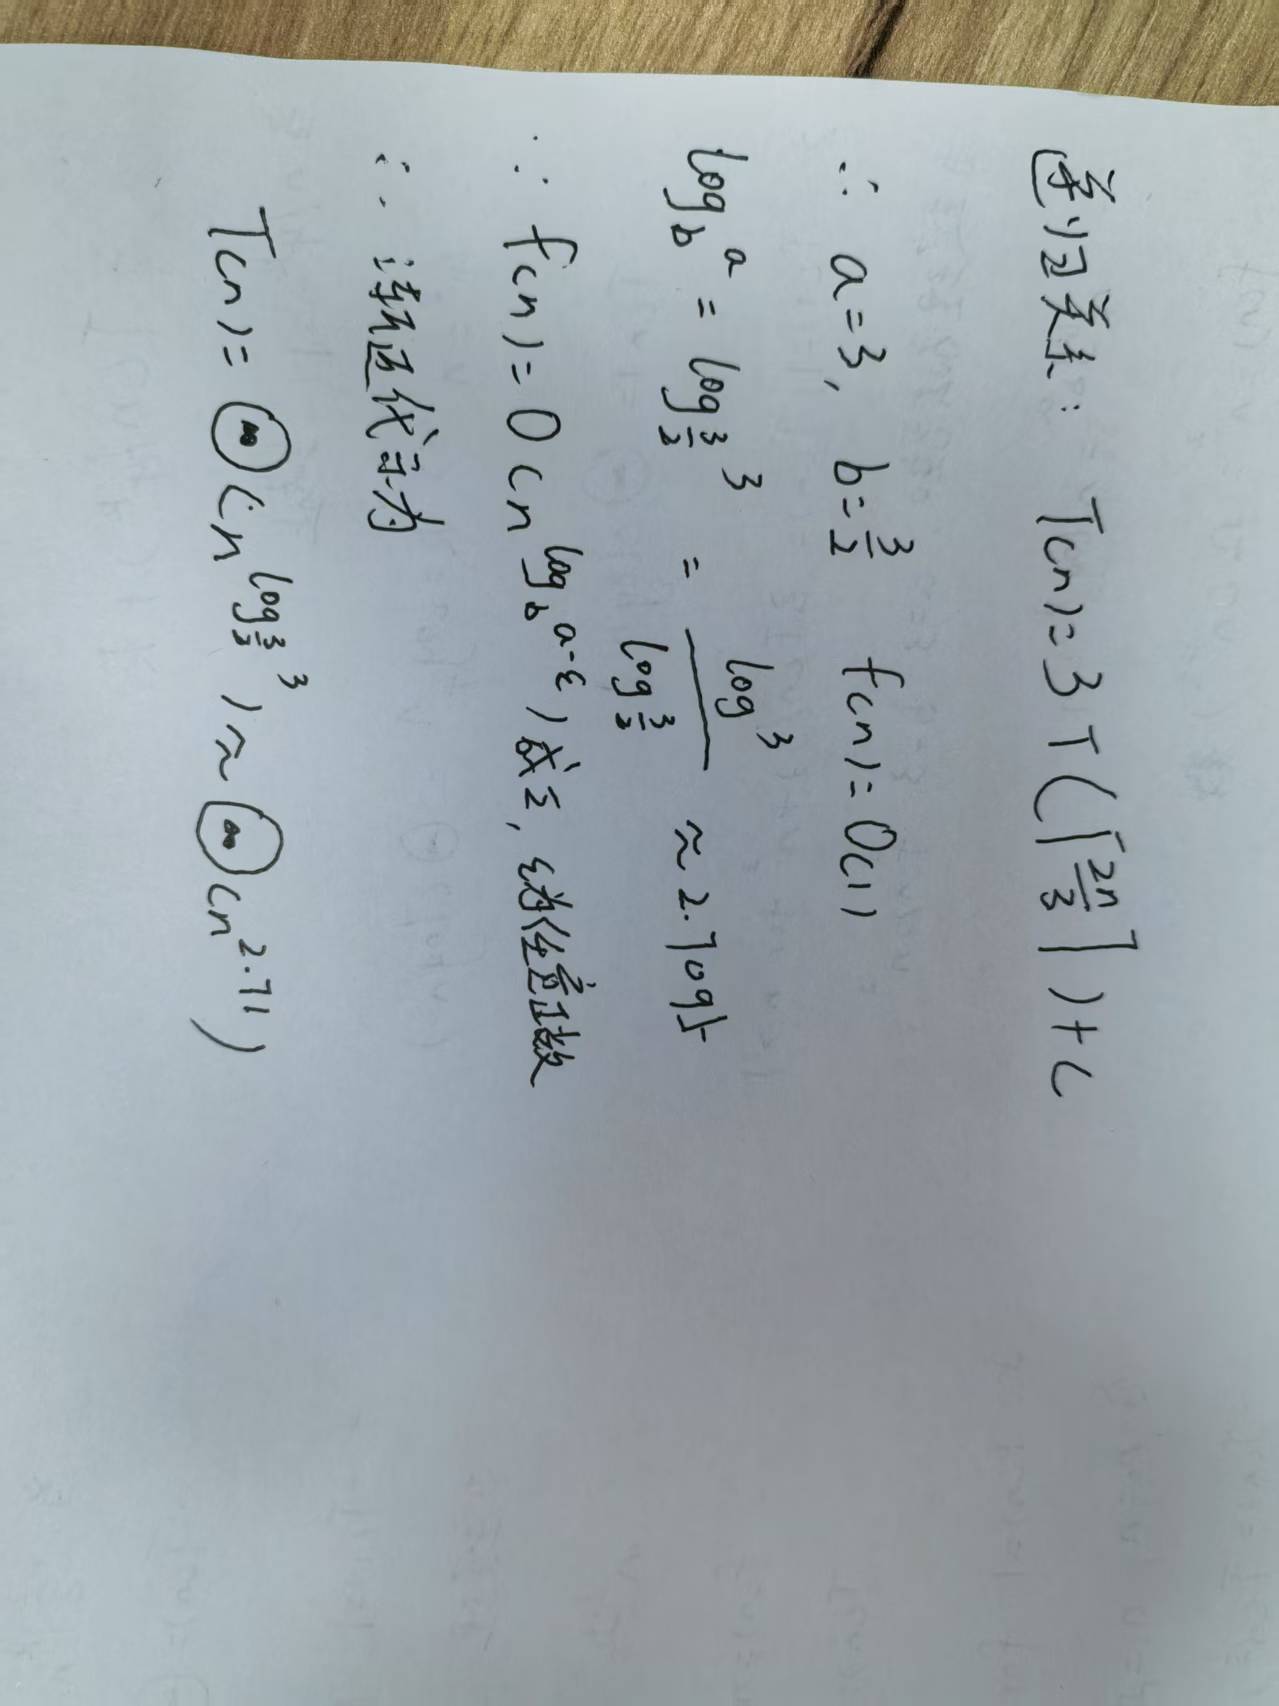 递归关系: T(n)=3T(⌈2n/3⌉)+C
∴ a=3, b=3/2 f(n)=O(1)
log_b^a = log_{3/2}^3 = log^3 / log 3/2 ≈ 2.7095
∵ f(n)=O(n^{log_b^{a-ε}})成立, ε为任意正数
∴ 渐近代示为
T(n)=Θ(n^{log_{3/2}^3})≈Θ(n^{2.71})